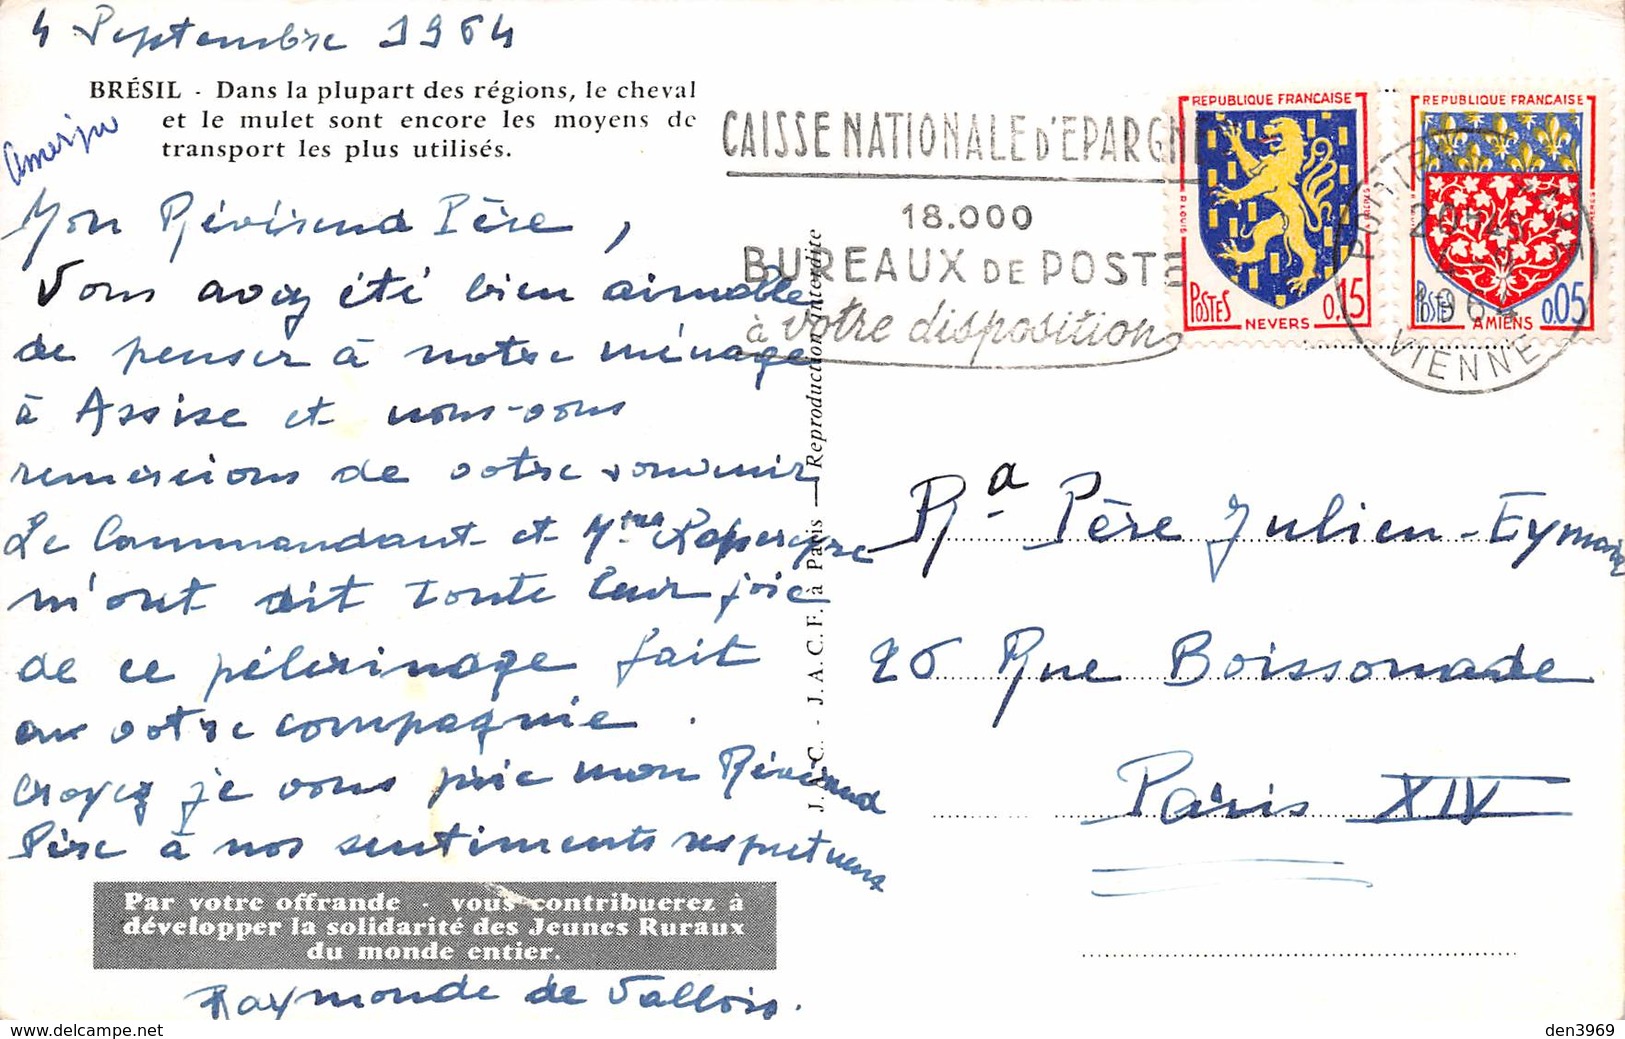 4 Septembre 1964
BRÉSIL - Dans la plupart des régions, le cheval
et le mulet sont encore les moyens de
transport les plus utilisés.
Mon Révérend Père,
Vous avez été bien aimable
de penser à notre ménage
à Assise et nous vous
remercions de votre souvenir
Le Commandant et Mme
m'ont dit toute leur joie
de ce pélerinage fait
en votre compagnie.
Croyez je vous prie mon Révérend
Père à nos sentiments respectueux
Par votre offrande - vous contribuerez à
développer la solidarité des Jeunes Ruraux
du monde entier.
Raymonde de Vallois.
J.A.C. - J.A.C.F. à Paris — Reproduction interdite
CAISSE NATIONALE D'EPARGNE
18.000
BUREAUX DE POSTE
à votre disposition
REPUBLIQUE FRANCAISE
POSTES 0,15
NEVERS
REPUBLIQUE FRANCAISE
POSTES 0,05
AMIENS
VIENNE
Rd Père Julien-Eymard
26 Rue Boissonade
Paris XIV
den3969
www.delcampe.net